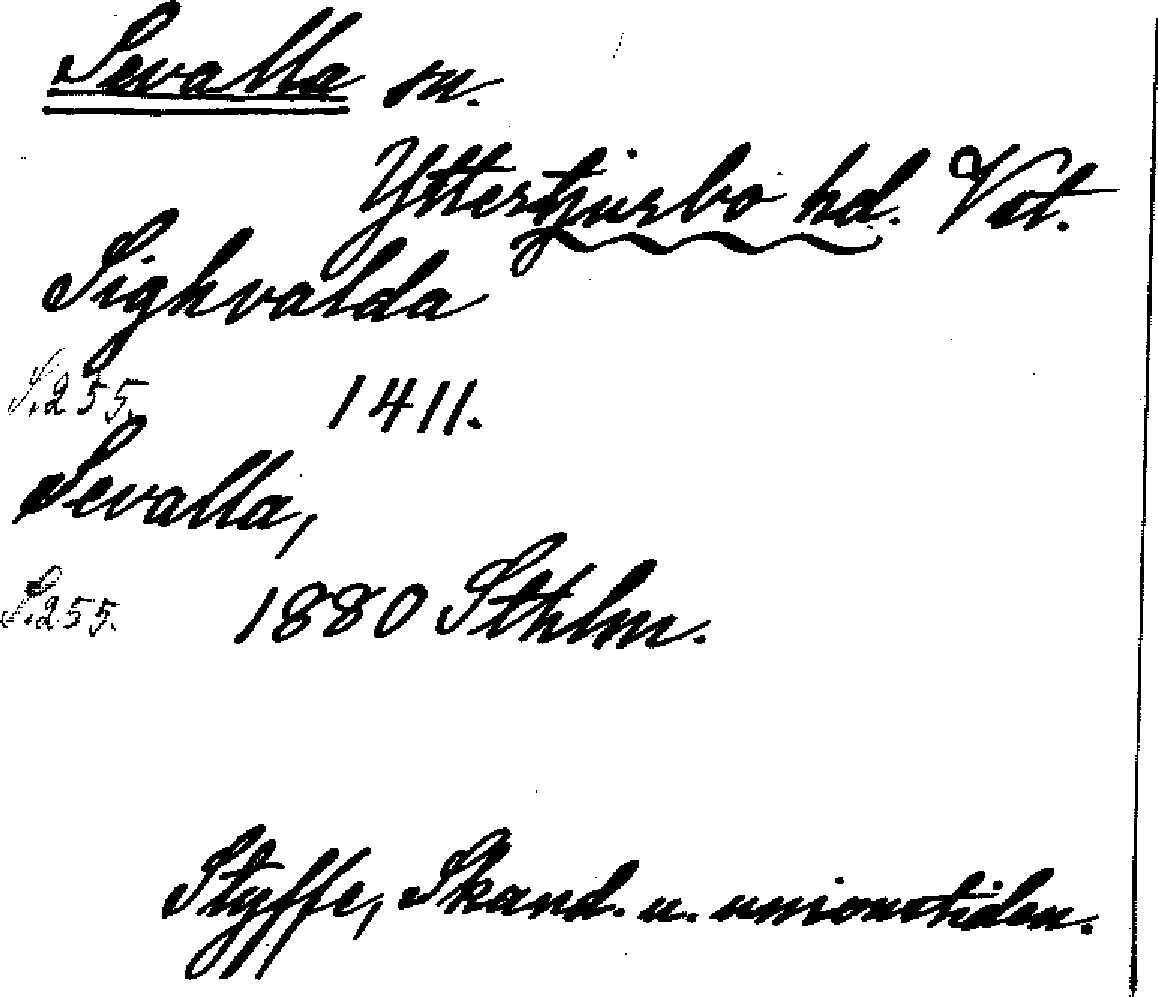 Sevalla sn.
Yttertjurbo hd. Vstm.
Sighvalda
S. 255. 1411.
Sevalla,
S. 255. 1880 Sthlm.
Styffe, Skand. u. unionstiden.